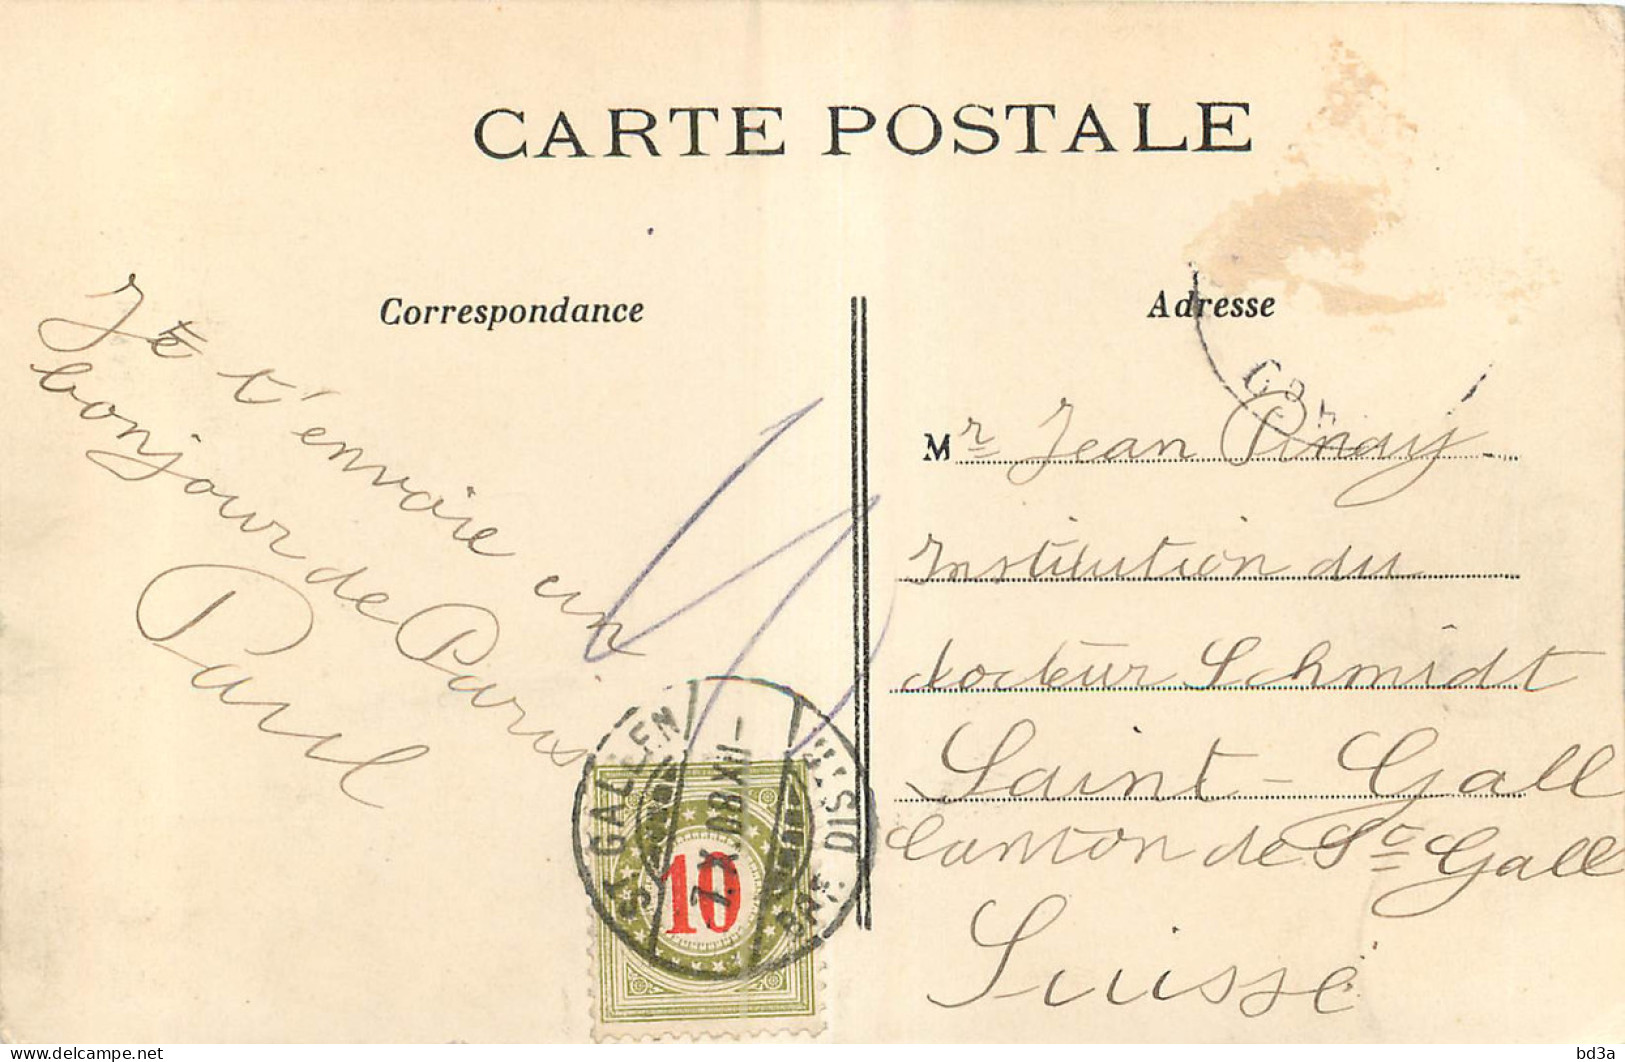 CARTE POSTALE
Correspondance
Je t'envoie un
bonjour de Paris
Paul
Adresse
Mr Jean Pinay
Institution du
docteur Schmidt
Saint-Gall
Canton de St Gall
Suisse
ST. GALLEN
7.X.08.XII-
BRF. DIST.
10
delcampe.net
bd3a